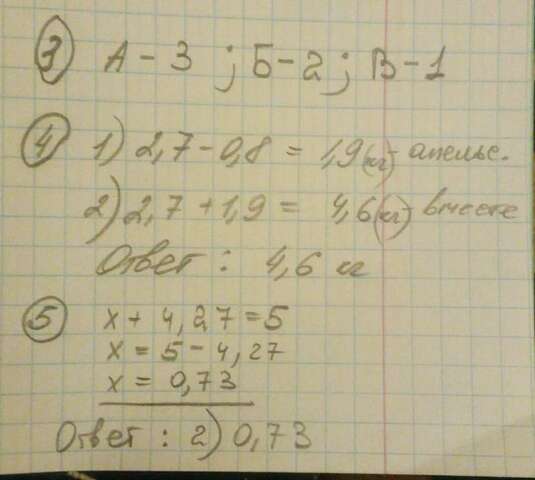 3 А - 3 ; Б - 2 ; В - 1
4 1) 2,7 - 0,8 = 1,9 (кг) - апельс.
2) 2,7 + 1,9 = 4,6 (кг) - вместе
Ответ : 4,6 кг
5 x + 4,27 = 5
x = 5 - 4,27
x = 0,73
Ответ : 2) 0,73